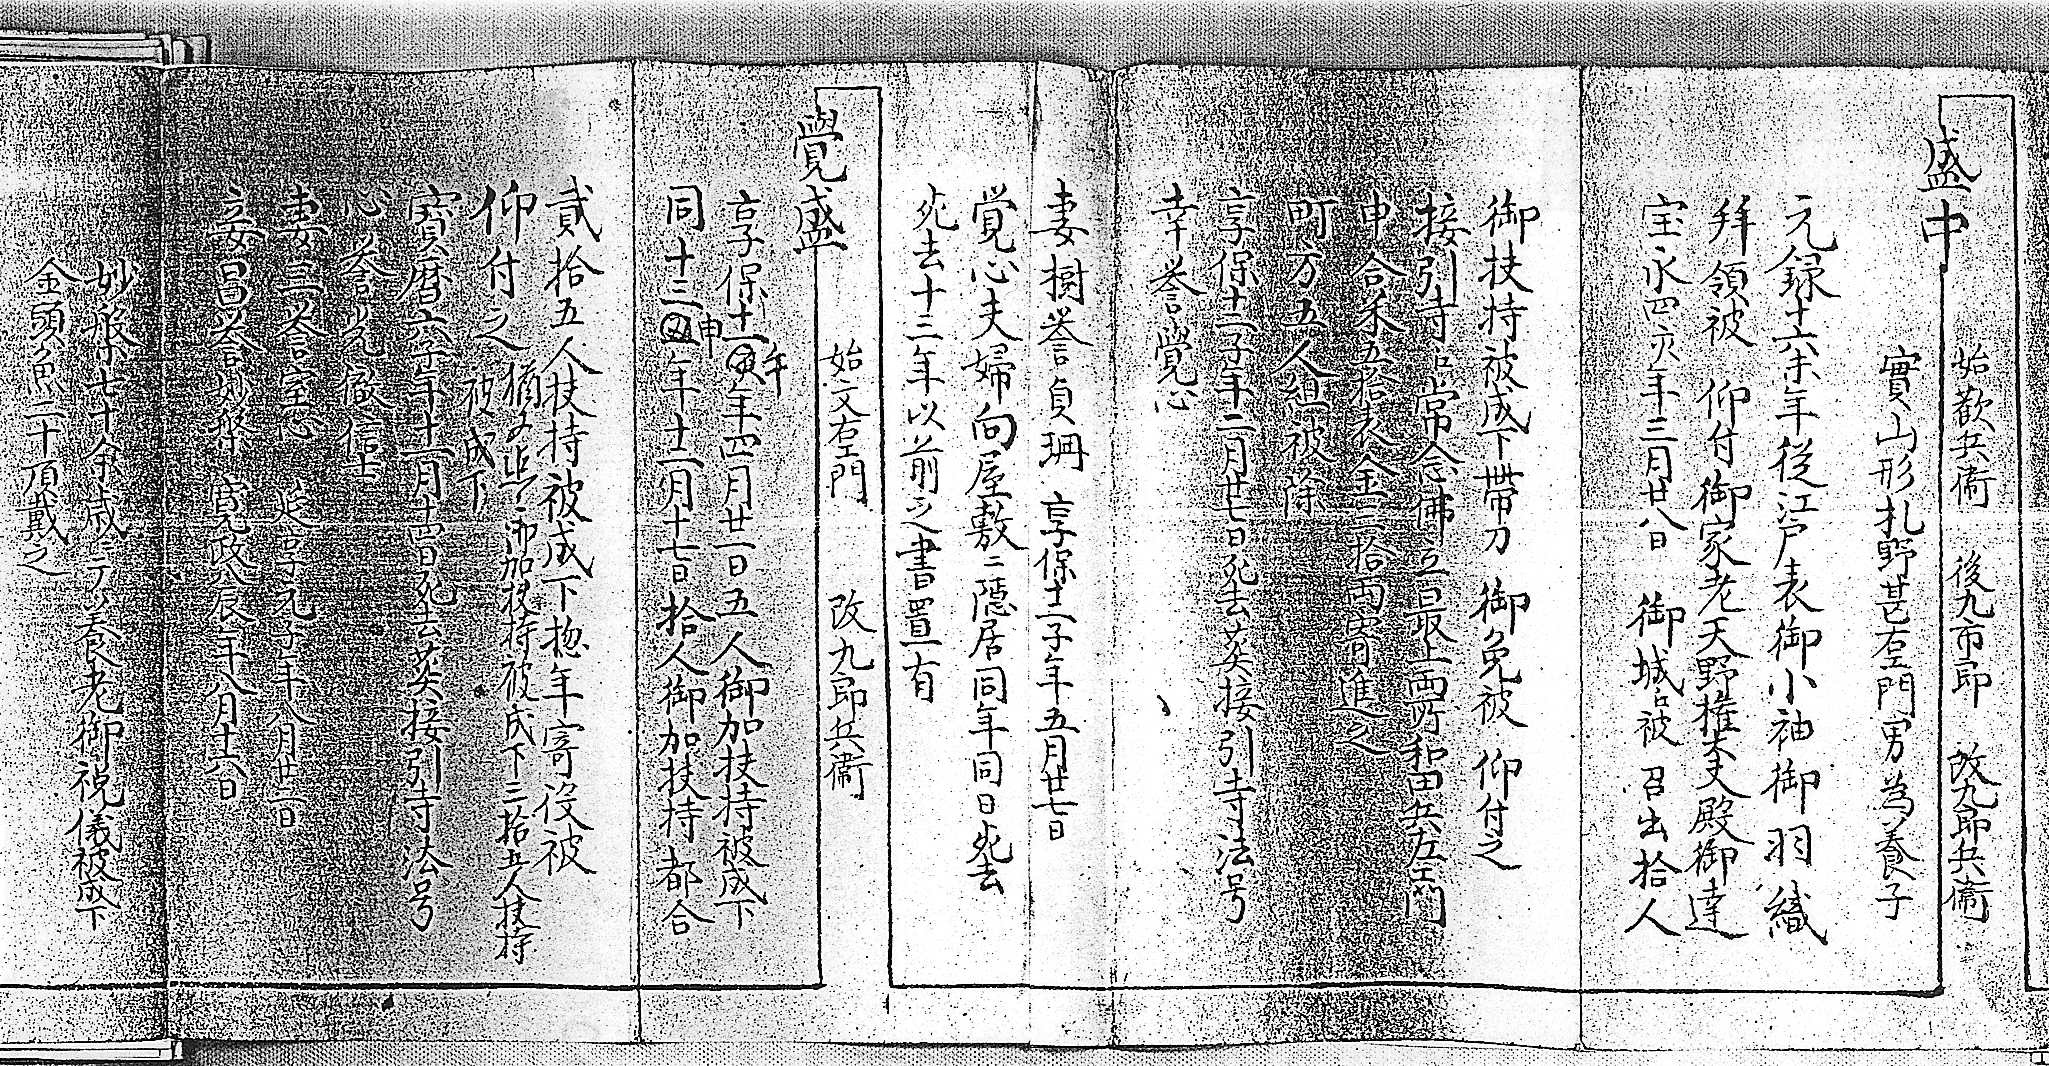 盛中
始歡兵衛 後九市郎 改九郎兵衛
實山形札野甚右衛門男為養子
元録十六未年從江戸表御小袖御羽織
拜領被 仰付御家老天野権太夫殿御達
宝永四亥年三月廿八日 御城江被 召出拾人
御扶持被成下帯刀 御免被 仰付之
接引寺江常念佛立最上西所和田兵左衛門
申合米五拾表金三拾両寄進之
町方五人組被除
享保十二子年二月廿七日死去葵接引寺法号
幸誉覚心
妻樹誉貞珊 享保十二子年五月廿七日
覚心夫婦向屋敷ニ隠居同年同日死去
死去十三年以前之書置有
覺盛
始文右衛門 改九郎兵衛
享保十一年四月廿一日五人御加扶持被成下
午
同十三年十一月十七日拾人御加扶持都合
申
貳拾五人扶持被成下惣年寄役被
仰付之 猶又追々御加扶持被成下三拾五人扶持
被成下
寳暦六子年十一月十四日死去葵接引寺法号
心誉光徹信士
妻三誉室心 延享元子年八月廿一日
妾昌誉妙槃 寛政八辰年八月十六日
妙槃七十余歳ニ而養老御祝儀被成下
金頭魚二十頂戴之